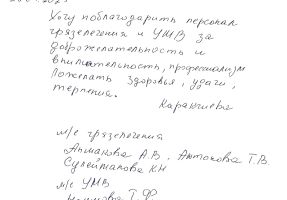 Хочу поблагодарить персонал
грязелечения и УМВ за
доброжелательность и
внимательность, профессионализм
Пожелать здоровья, удачи,
терпения.
Каранчиева
м/с грязелечения
Атманова А.В. Антонова Т.В.
Сулейманова К.Н
м/с УМВ
Т.Ф.